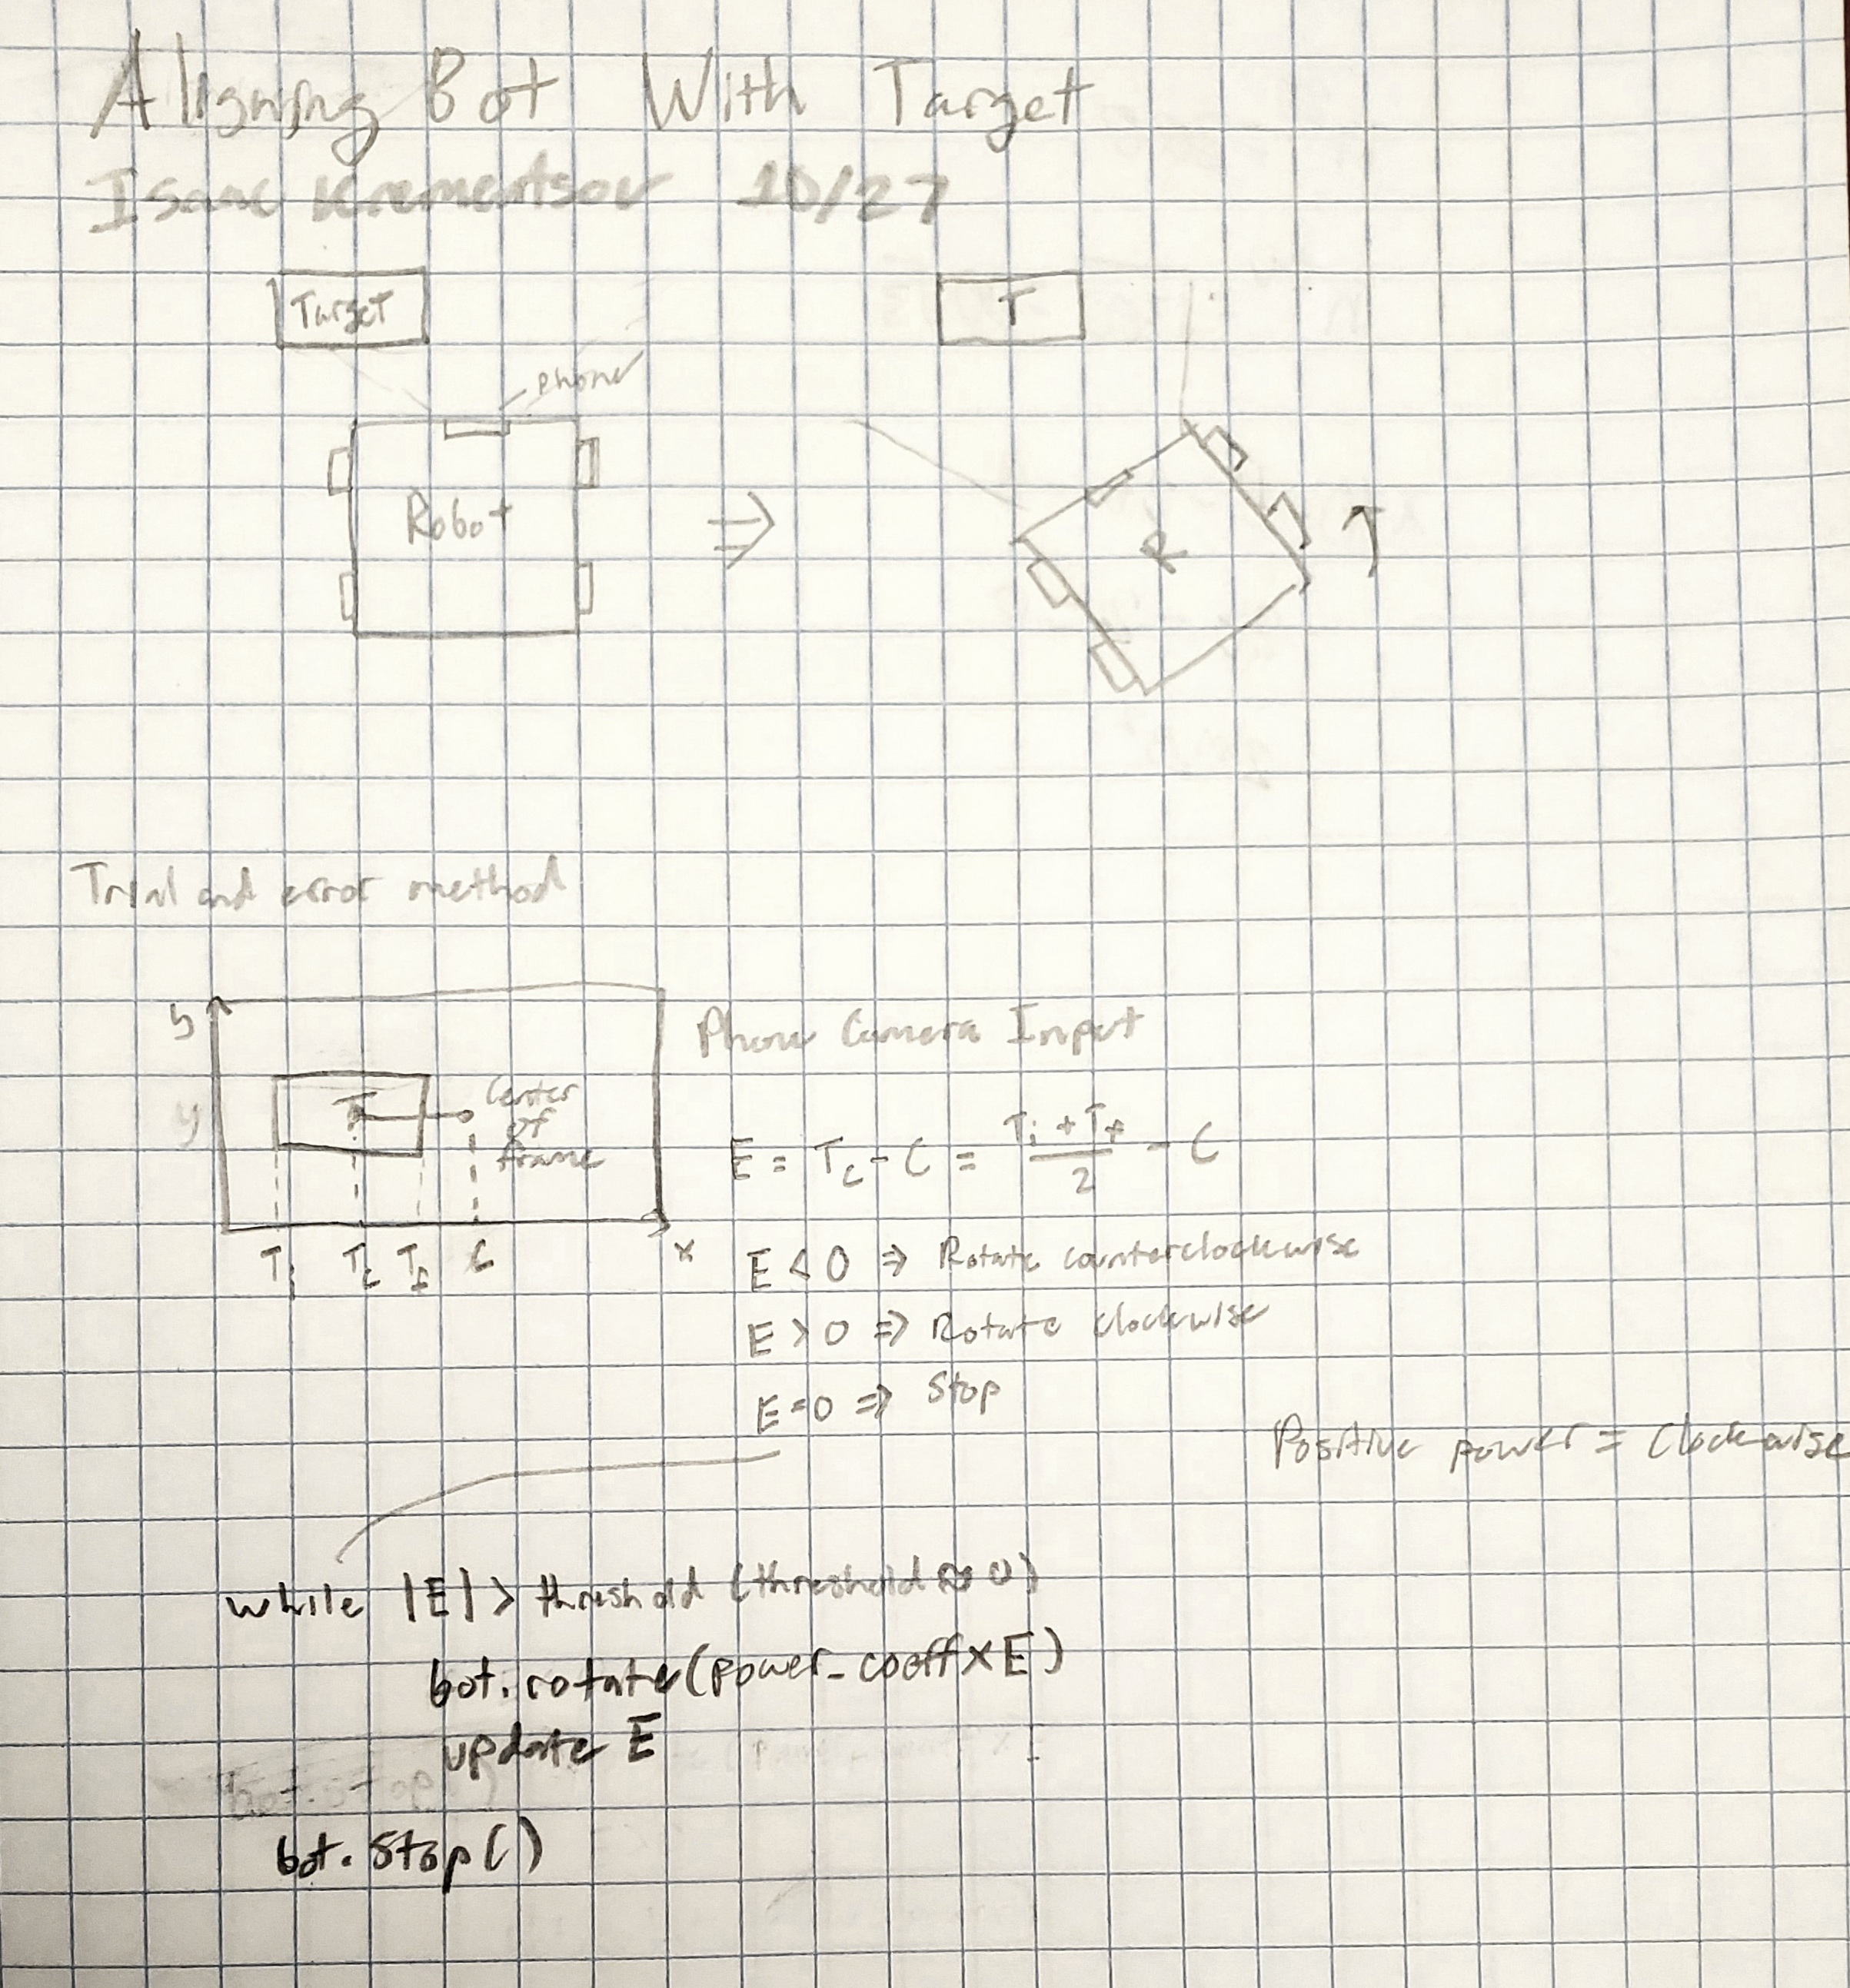 Aligning Bot With Target
Isaac Krementsov 10/27
Target
T
phone
Robot
R
Trial and error method
y
Phone Camera Input
y
T
Center
of
frame
E = Tc - C = Ti + Tf / 2 - C
Ti Tc Tf C x
E < 0 ⇒ Rotate counterclockwise
E > 0 ⇒ Rotate clockwise
E = 0 ⇒ Stop
Positive power = Clockwise
while |E| > threshold (threshold ≈ 0)
bot.rotate(power_coeff × E)
update E
bot.stop()
bot.stop()